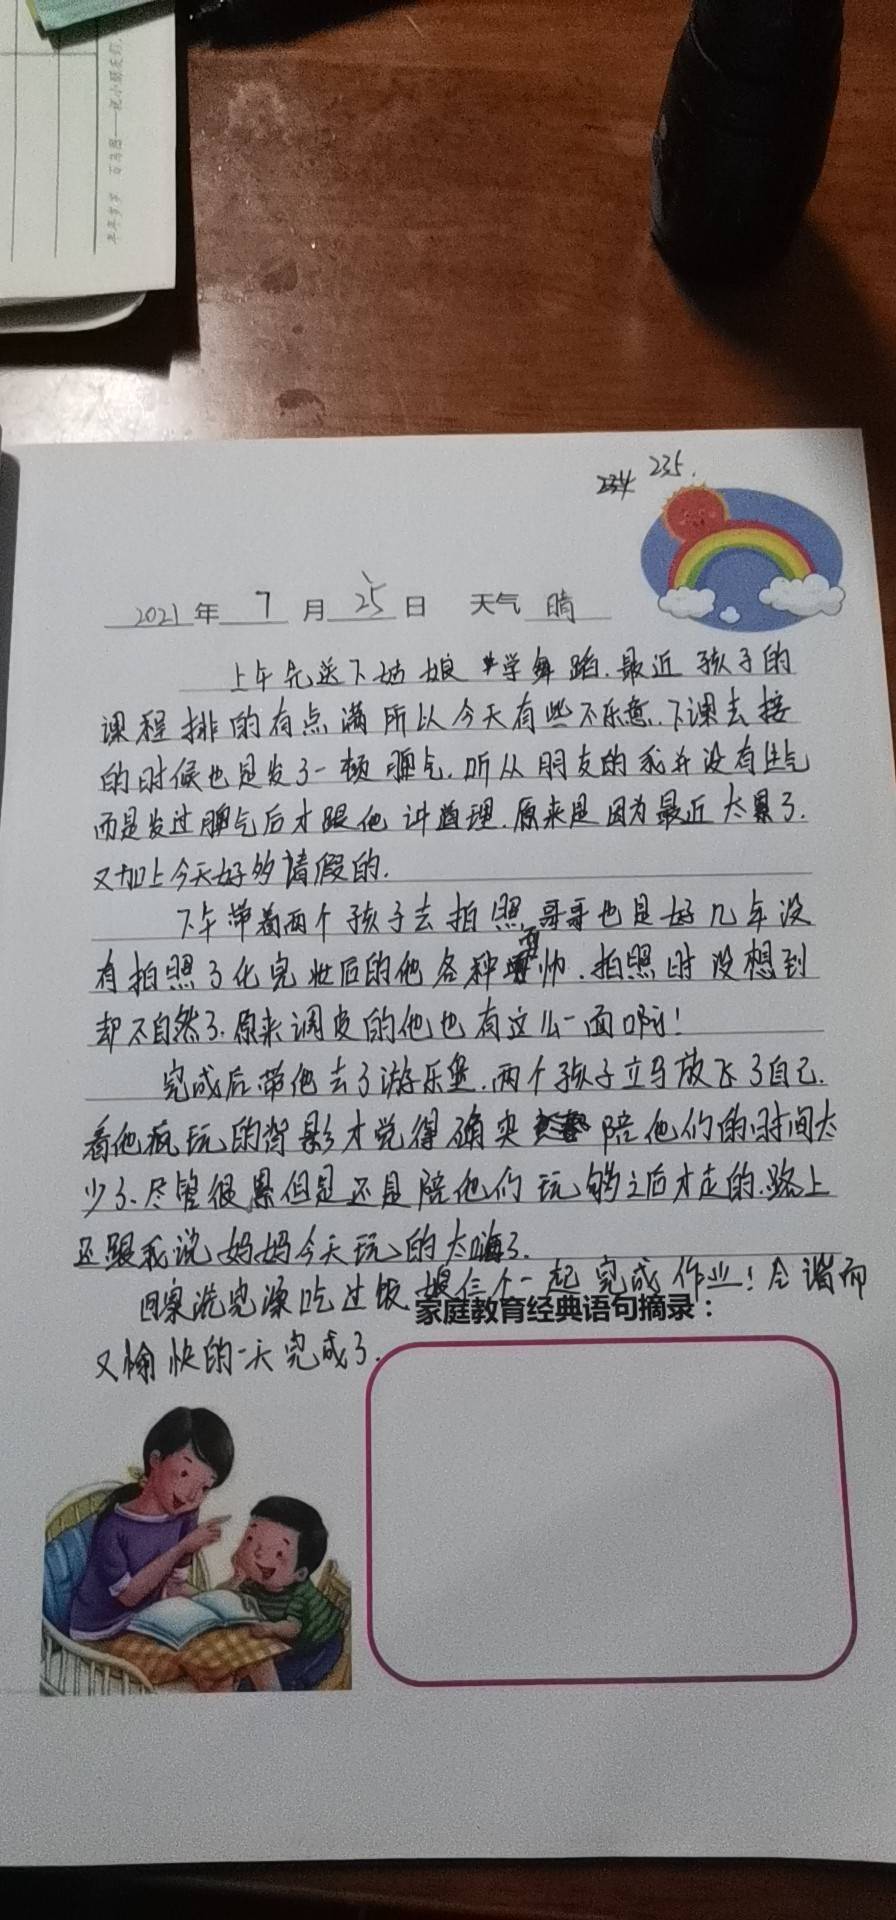 年年岁岁 百鸟图——祝小朋友们
234 235.
2021年 7 月 25 日 天气 晴
上午先送下姑娘学舞蹈.最近孩子的
课程排的有点满所以今天有些不乐意.下课去接
的时候也是发了一顿脾气.听从朋友的我并没有生气
而是发过脾气后才跟他讲道理.原来是因为最近太累了.
又加上今天好多请假的.
下午带着两个孩子去拍照.哥哥也是好几年没
有拍照了化完妆后的他各种耍帅.拍照时没想到
却不自然了.原来调皮的他也有这么一面啊!
完成后带他去了游乐堡.两个孩子立马放飞了自己.
看他疯玩的背影才觉得确实陪他们的时间太
少了.尽管很累但是还是陪他们玩够之后才走的.路上
还跟我说妈妈今天玩的太嗨了.
回家洗完澡吃过饭娘仨个一起完成作业!合谐而
家庭教育经典语句摘录：
又愉快的一天完成了.